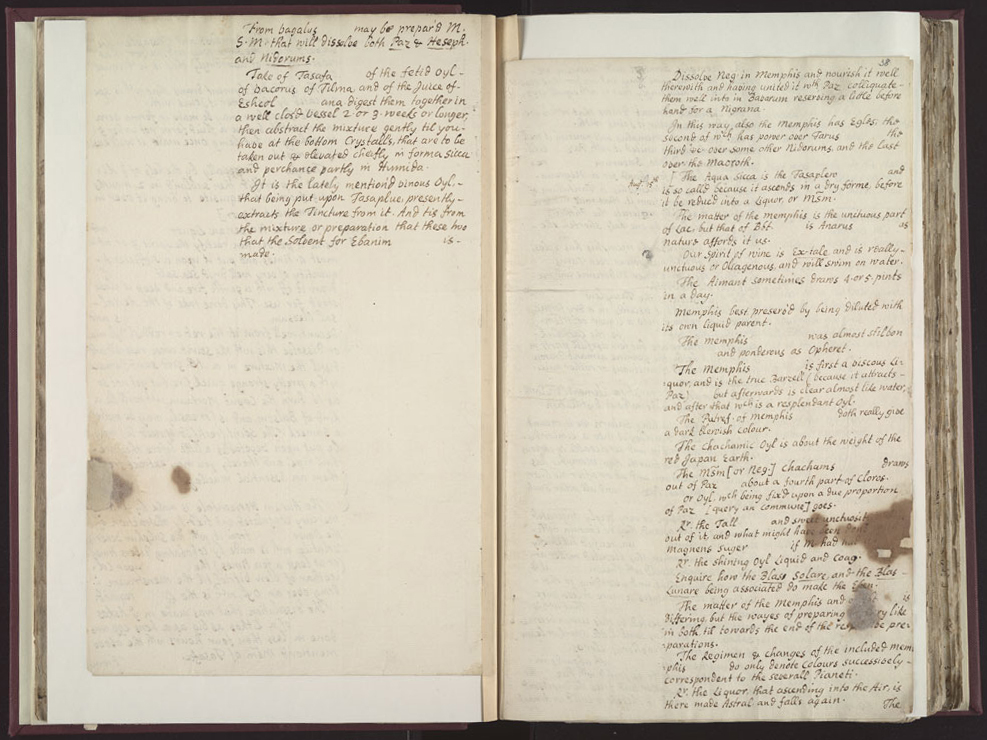 From bagalus may be prepar'd M.
S. M. that will dissolve both Paz & Heseph
and Nidorums.
Take of Tasafa of the fetid Oyl -
of bacorus of Tilma, and of the Juice of-
Eshcol ana digest them together in
a well clos'd vessel 2 or 3 weeks or longer,
then abstract the mixture gently til you-
have at the bottom Crystalls, that are to be
taken out & elevated cheifly in forma sicca
and perchance partly in Humida.
It is the lately mention'd vinous Oyl, -
that being put upon Tasaplue, presently -
extracts the Tincture from it. And tis from
the mixture or preparation that these two
that the Solvent for Ebanim is -
made.
38
Dissolve Neg: in Memphis and nourish it well
therewith and having united it wth Paz, colliquate-
them well into in Bagarum reserving a little before
hand for a Nigrana.
In this way, also the Memphis has Egls; the
second of wch has power over Tarus the
third &c over some other Nidorums, and the last
over the Macroth.
Augt. 15th ] The Aqua Sicca is the Tasaplero and
is so calld because it ascends in a dry forme, before
it be reduc'd into a Liquor, or Msm.
The matter of the Memphis is the unctuous part
of Lac, but that of Bbt. is Anarus as
nature affords it us.
Our Spirit of wine is Ex-tale, and is really-
unctuous or Oleagenous, and will swim on water.
The Aimant sometimes draws 4 or 5 pints
in a day.
Memphis best preserv'd by being diluted with
its own liquid parent.
The Memphis was almost stilbon
and ponderous as Opheret.
The Memphis is first a viscous Li-
quor, and is the true Barzell (because it attracts -
Paz) but afterwards is clear almost like water,
and after that wch is a resplendant Oyl.
The Putref. of Memphis doth really give
a dark blewish colour.
The Chachamic Oyl is about the weight of the
red Japan Earth.
The Msm [or Neg:] Chachums draws
out of Paz about a fourth part of Cloros.
or Oyl, wch being fix'd upon a due proportion
of Paz [query an commune] goes.
Qr. the Tall and sweet unctuosit
out of it, and what might have been
magnens super if M. had
Qr. the shining Oyl Liquid and Coag.
Enquire how the Blass Solare, and the Blas -
Lunare being associated do make the Eben.
The matter of the Memphis and is
differing, but the wayes of preparing very like
in both til towards the end of the respective pre-
parations.
The Regimen & changes of the included mem
phis do only denote Colours successively -
correspondent to the severall Pianeti.
Qr. the Liquor, that ascending into the Air, is
there made Astral and falls again. The